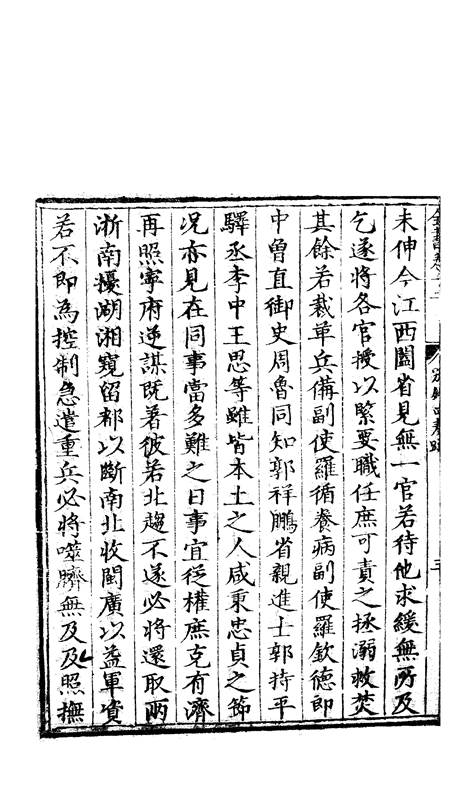 未伸今江西闔省見無一官若待他求緩無所及
乞遂將各官授以緊要職任庶可責之拯溺救焚
其餘若裁革兵備副使羅循養病副使羅欽德郎
中曾直御史周魯同知郭祥鵬省親進士郭持平
驛丞李中王思等雖皆本土之人咸秉忠貞之節
况亦見在同事當多難之日事宜從權庶克有濟
再照寧府逆謀既著彼若北趨不遂必將還取兩
浙南擾湖湘窺留都以斷南北收閩廣以益軍資
若不即為控制急遣重兵必將噬臍無及及照撫